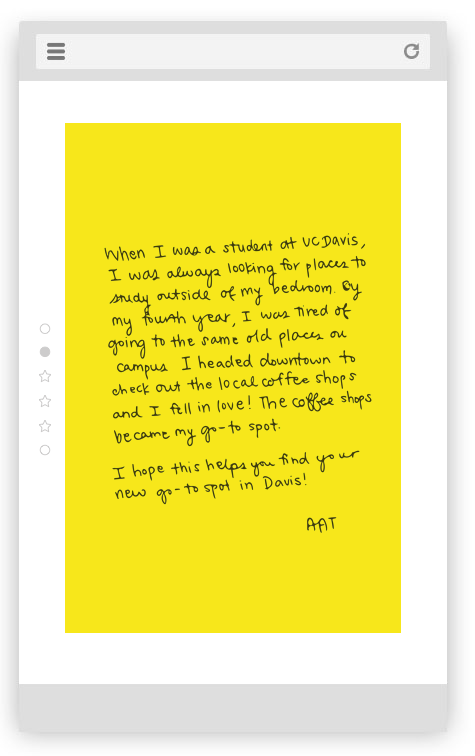 When I was a student at UC Davis,
I was always looking for places to
study outside of my bedroom. By
my fourth year, I was tired of
going to the same old places on
campus I headed downtown to
check out the local coffee shops
and I fell in love! The coffee shops
became my go-to spot.
I hope this helps you find your
new go-to spot in Davis!
AAT